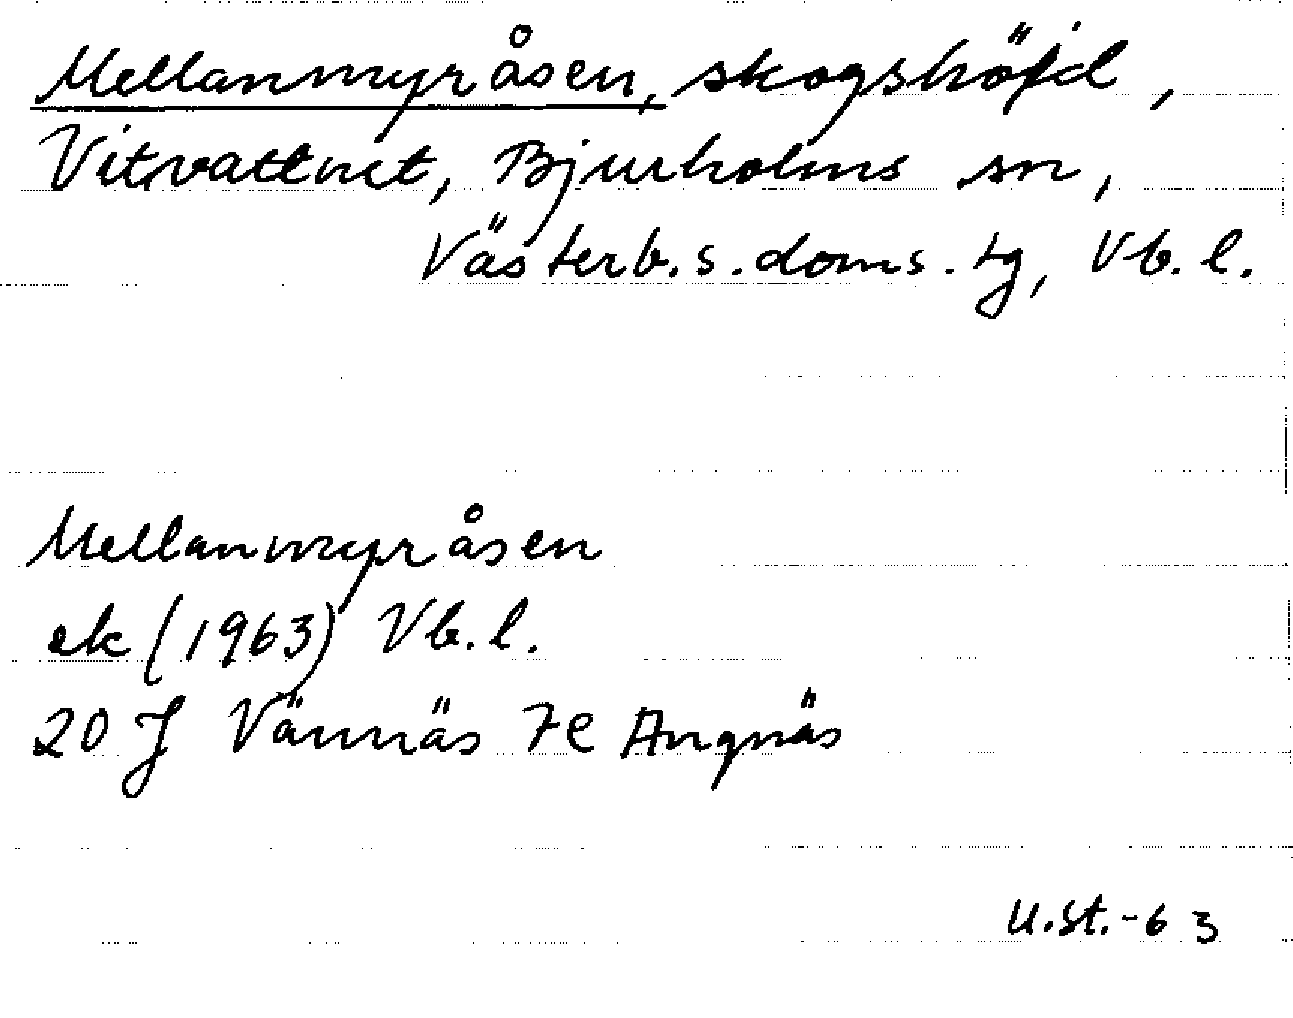 Mellanmyråsen, skogshöjd,
Vitvattnet, Bjurholms sn,
Västerb. s. doms. tg, Vb. l.
Mellanmyråsen
ek (1963) Vb. l.
20 J Vännäs 7e Angnäs
U.St.-63